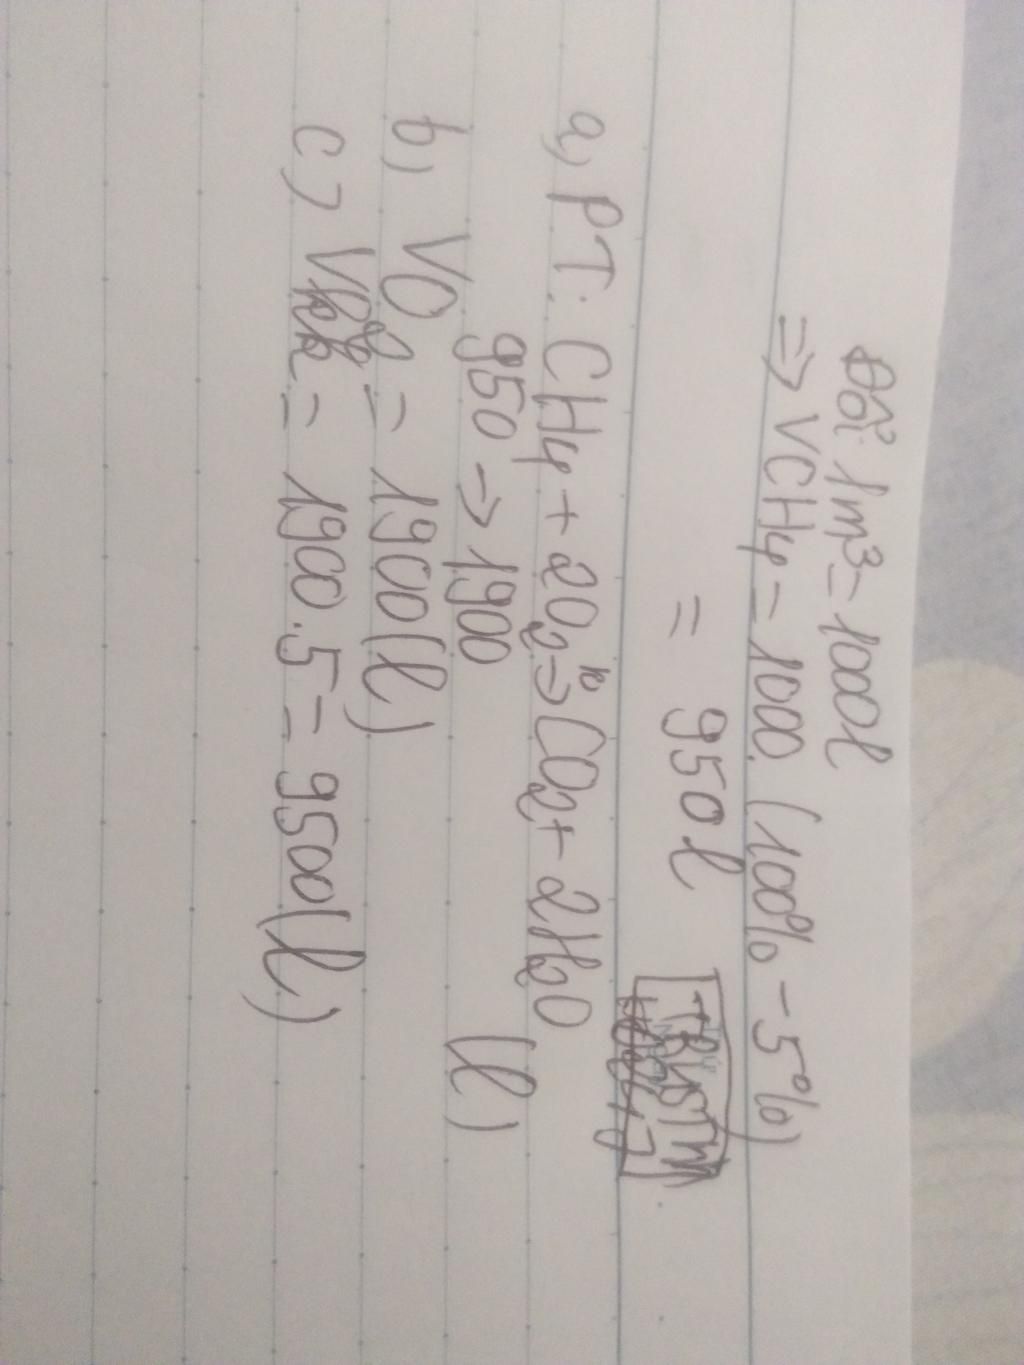 Đổi 1m³ = 1000l
=> VCH₄ = 1000. (100% - 5%)
= 950l
a, PT: CH₄ + 2O₂ t° -> CO₂ + 2H₂O
950 -> 1900 (l)
b, VO₂ = 1900(l)
c) Vkk = 1900.5 = 9500(l)